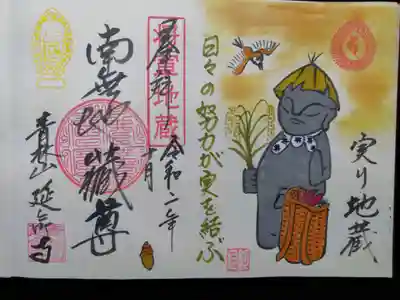 実り地蔵
日々の努力が実を結ぶ
令和二年
十月
南無地蔵尊
青林山 延命寺